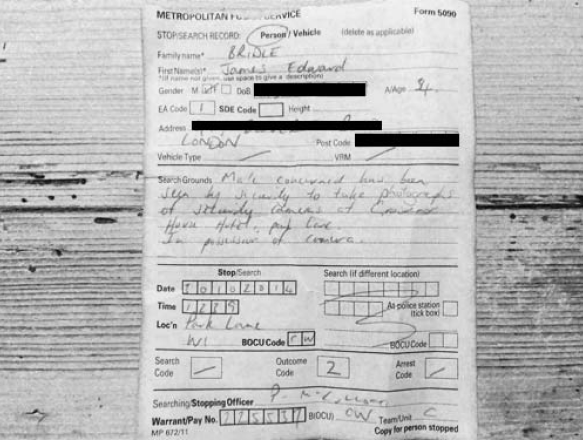 METROPOLITAN POLICE SERVICE Form 5090
STOP/SEARCH RECORD: Person / Vehicle (delete as applicable)
Family name* BRIDLE
First Name(s)* James Edward
(*If name not given, use space to give a description)
Gender M F DoB A/Age
EA Code 1 SDE Code Height
Address
LONDON Post Code
Vehicle Type VRM
Search Grounds Male concerned has been
seen by security to take photographs
of security cameras at Grosvenor
House Hotel, park lane.
In possession of camera.
Stop/Search Search (if different location)
Date 30102014
Time At police station
(tick box)
Loc'n Park Lane
W1 BOCU Code CW BOCU Code
Search Code Outcome Code 2 Arrest Code
Searching/Stopping Officer
Warrant/Pay No. 225537 B(OCU) CW Team/Unit C
MP 672/11 Copy for person stopped